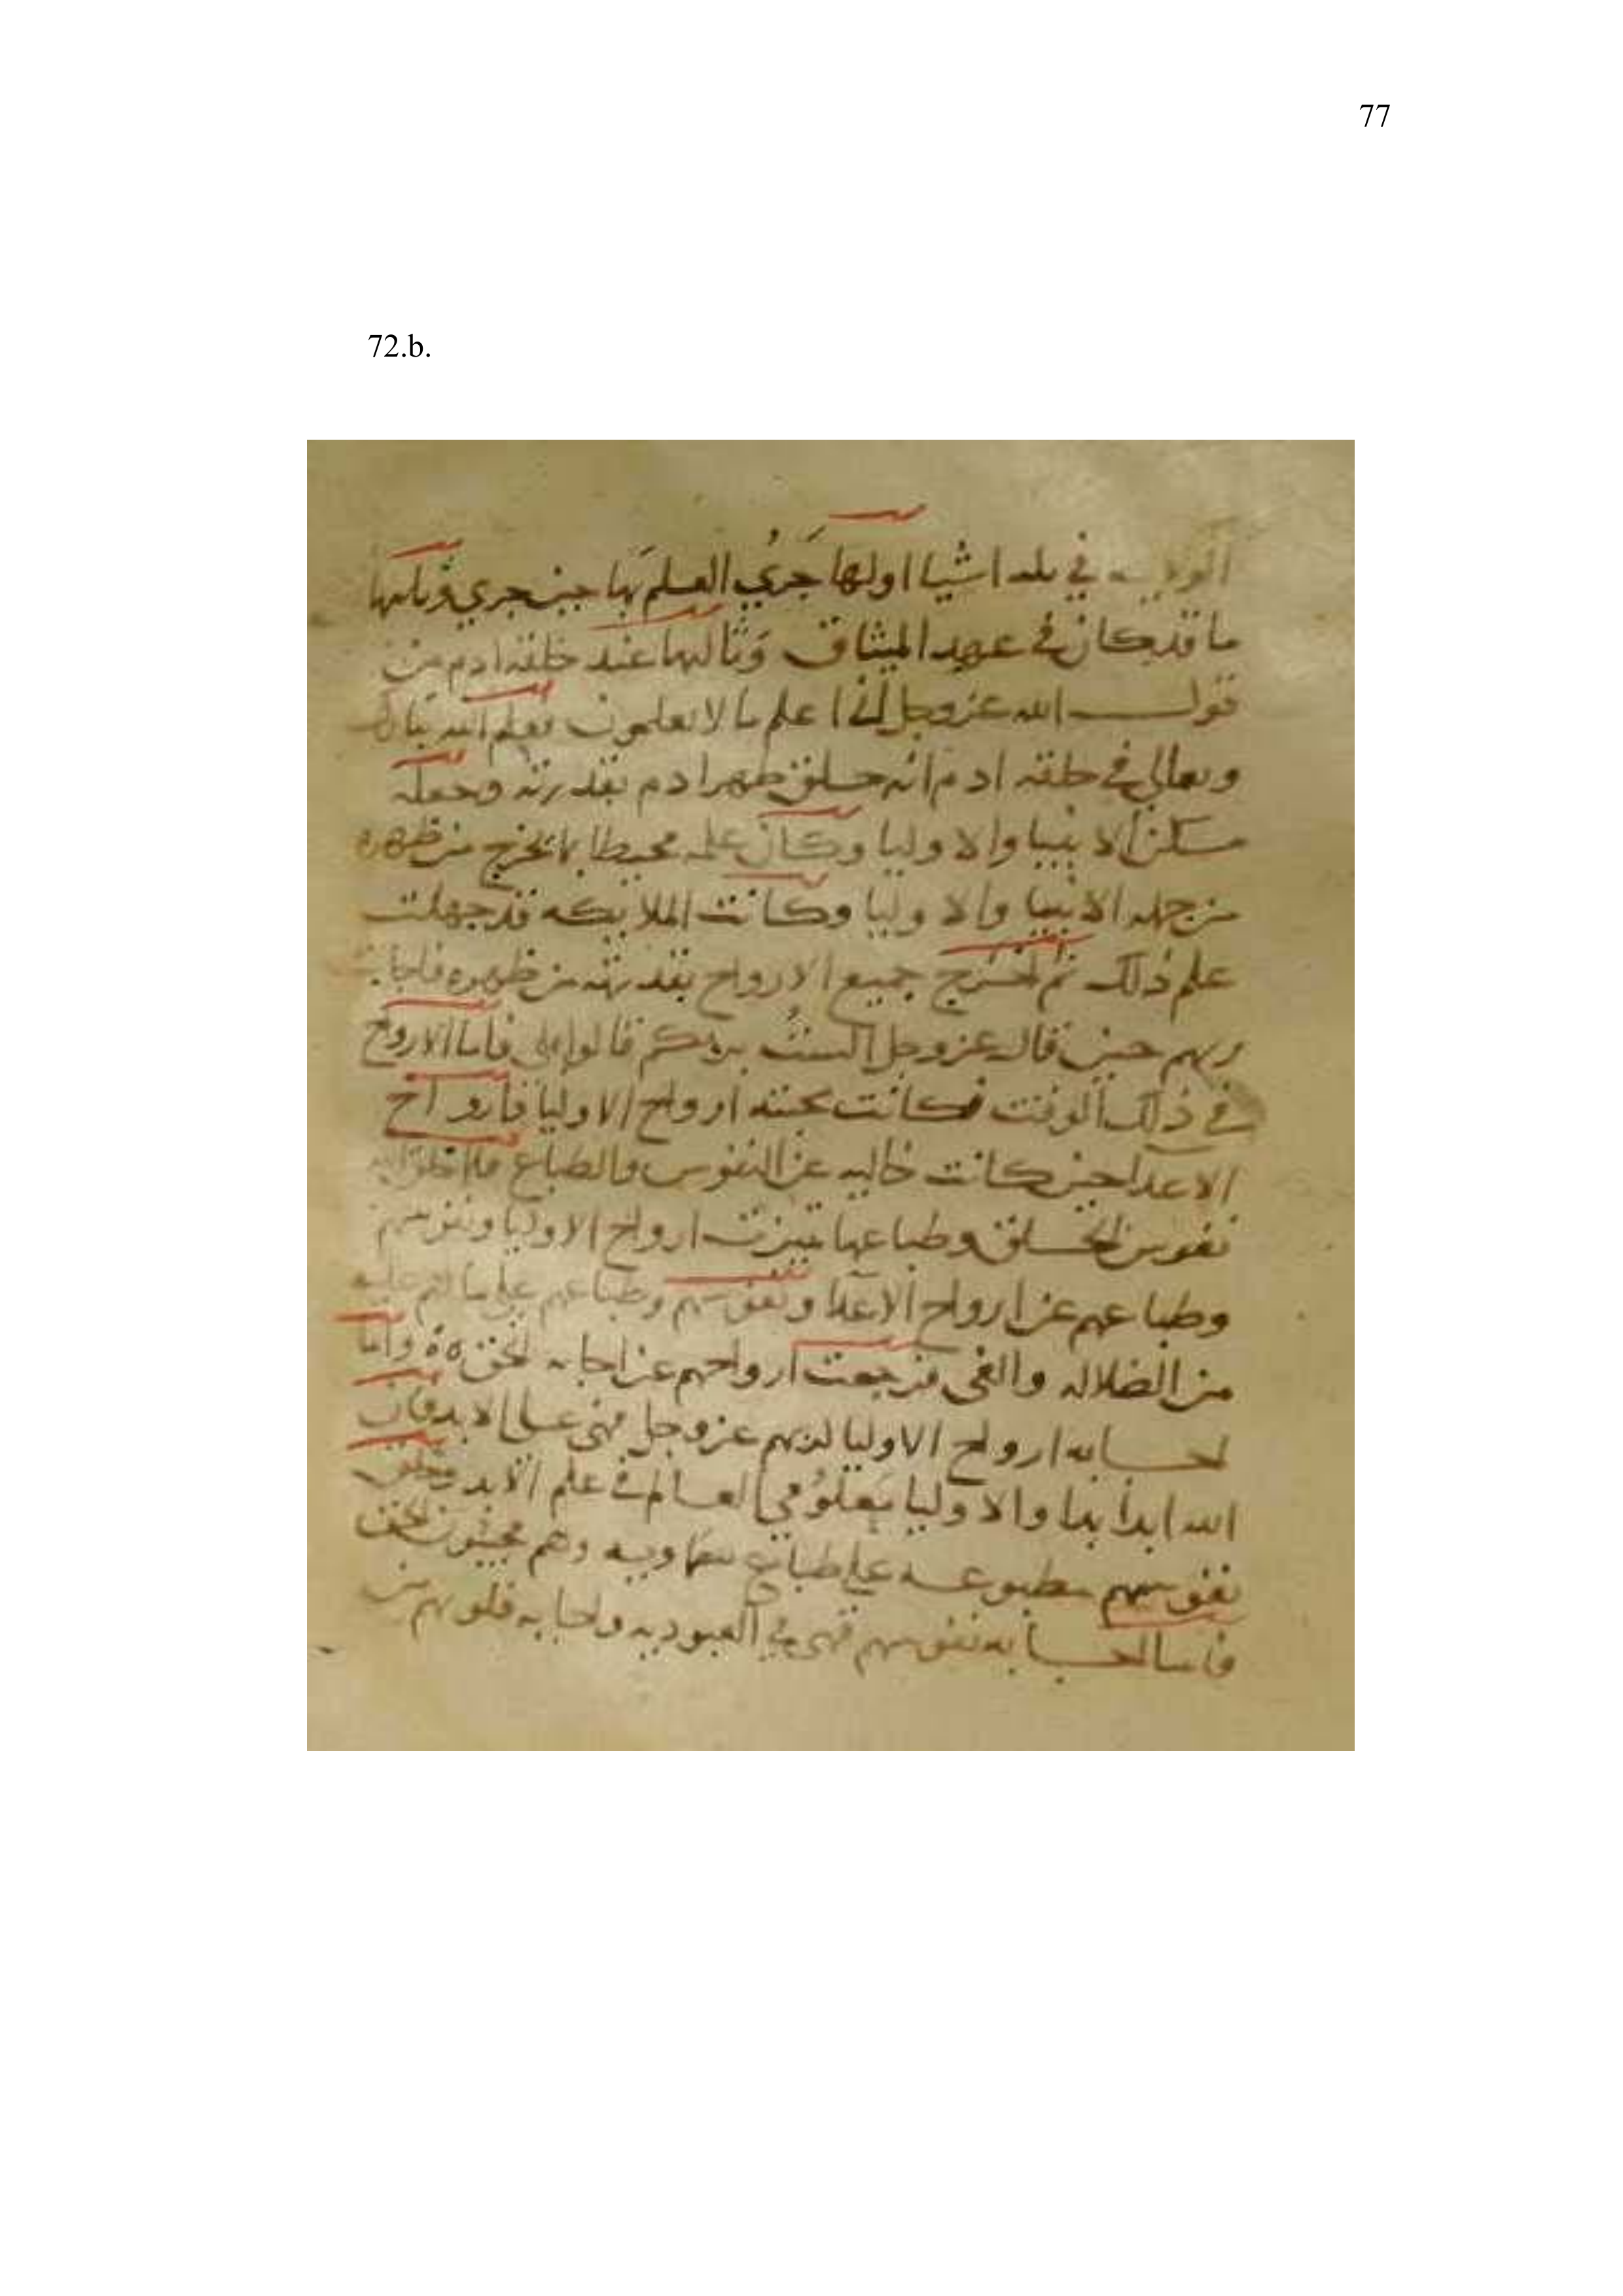 77
72.b.
في ثلثه اشيا اولها جَري العلم بها حين جري وثانيها
ما قد كان في عهد الميثاق وثالثها عند خلقه ادم من
قول الله عز وجل اني اعلم ما لا تعلمون فعلم الله تبارك
وتعالى في خلقه ادم انه خلق ظهر ادم بقدرته وجعله
مسكن الانبيا والاوليا وكان علمه محيطا بما يخرج من ظهره
من جهه الانبيا والاوليا وكانت الملايكه قد جهلت
علم ذلك ثم اخرج جميع الارواح بقدرته من ظهره فاجابت
ربهم حين قال عز وجل الست بربكم قالوا بلى فاما الارواح
في ذلك الوقت فكانت ارواح الاوليا فارواح
الاعدا حين كانت خاليه عن النفوس والطباع فلما
نفوس الخلق وطباعها تميزت ارواح الاوليا ونفوسهم
وطباعهم عن ارواح الاعدا ونفوسهم وطباعهم على ما هم عليه
من الضلاله والغى فرجعت ارواحهم عن اجابه الحق ه ه واما
اجابه ارواح الاوليا لربهم عز وجل فهى على الابد
الله ابدا ابدا والاوليا في العالم في علم الابد
نفوسهم مطبوعه على طباع سماويه وهم
فاما اجابه نفوسهم فهى في العبوديه واجابه قلوبهم من